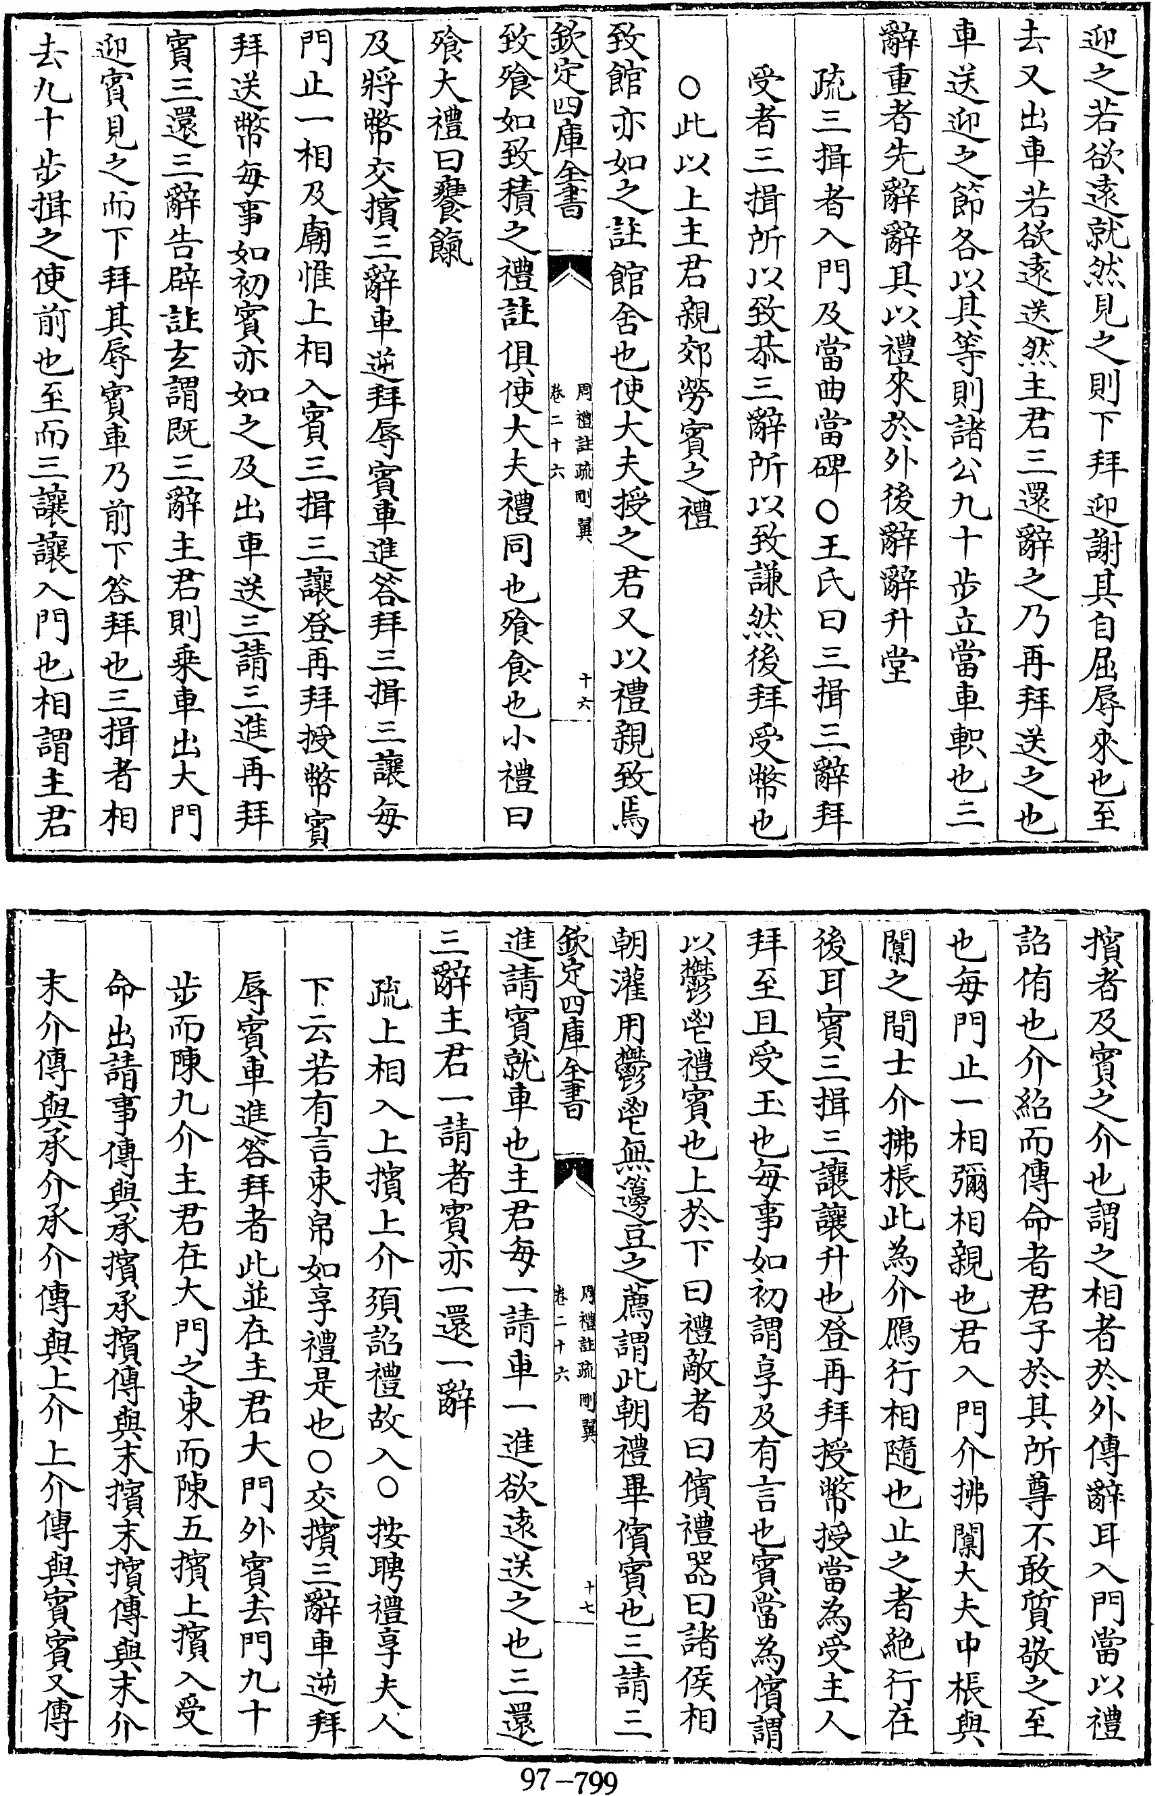 迎之若欲遠就然見之則下拜迎謝其自屈辱來也至
去又出車若欲遠送然主君三還辭之乃再拜送之也
車送迎之節各以其等則諸公九十步立當車軹也三
辭重者先辭辭其以禮來於外後辭辭升堂
疏三揖者入門及當曲當碑○王氏曰三揖三辭拜
受者三揖所以致恭三辭所以致謙然後拜受幣也
○此以上主君親郊勞賓之禮
致館亦如之註館舍也使大夫授之君又以禮親致焉
欽定四庫全書
周禮註疏刪翼
卷二十六
十六
致飧如致積之禮註俱使大夫禮同也飧食也小禮曰
飧大禮曰饔餼
及將幣交擯三辭車逆拜辱賓車進答拜三揖三讓每
門止一相及廟惟上相入賓三揖三讓登再拜授幣賓
拜送幣每事如初賓亦如之及出車送三請三進再拜
賓三還三辭告辟註玄謂既三辭主君則乗車出大門
迎賓見之而下拜其辱賓車乃前下答拜也三揖者相
去九十步揖之使前也至而三讓讓入門也相謂主君
擯者及賓之介也謂之相者於外傳辭耳入門當以禮
詔侑也介紹而傳命者君子於其所尊不敢質敬之至
也每門止一相彌相親也君入門介拂闑大夫中棖與
闑之間士介拂棖此為介鴈行相隨也止之者絶行在
後耳賓三揖三讓讓升也登再拜授幣授當為受主人
拜至且受玉也每事如初謂享及有言也賓當為儐謂
以鬱鬯禮賓也上於下曰禮敵者曰儐禮器曰諸侯相
朝灌用鬱鬯無籩豆之薦謂此朝禮畢儐賓也三請三
欽定四庫全書
周禮註疏刪翼
卷二十六
十七
進請賓就車也主君每一請車一進欲遠送之也三還
三辭主君一請者賓亦一還一辭
疏上相入上擯上介須詔禮故入○按聘禮享夫人
下云若有言束帛如享禮是也○交擯三辭車逆拜
辱賓車進答拜者此並在主君大門外賓去門九十
步而陳九介主君在大門之東而陳五擯上擯入受
命出請事傳與承擯承擯傳與末擯末擯傳與末介
末介傳與承介承介傳與上介上介傳與賓賓又傳
97-799